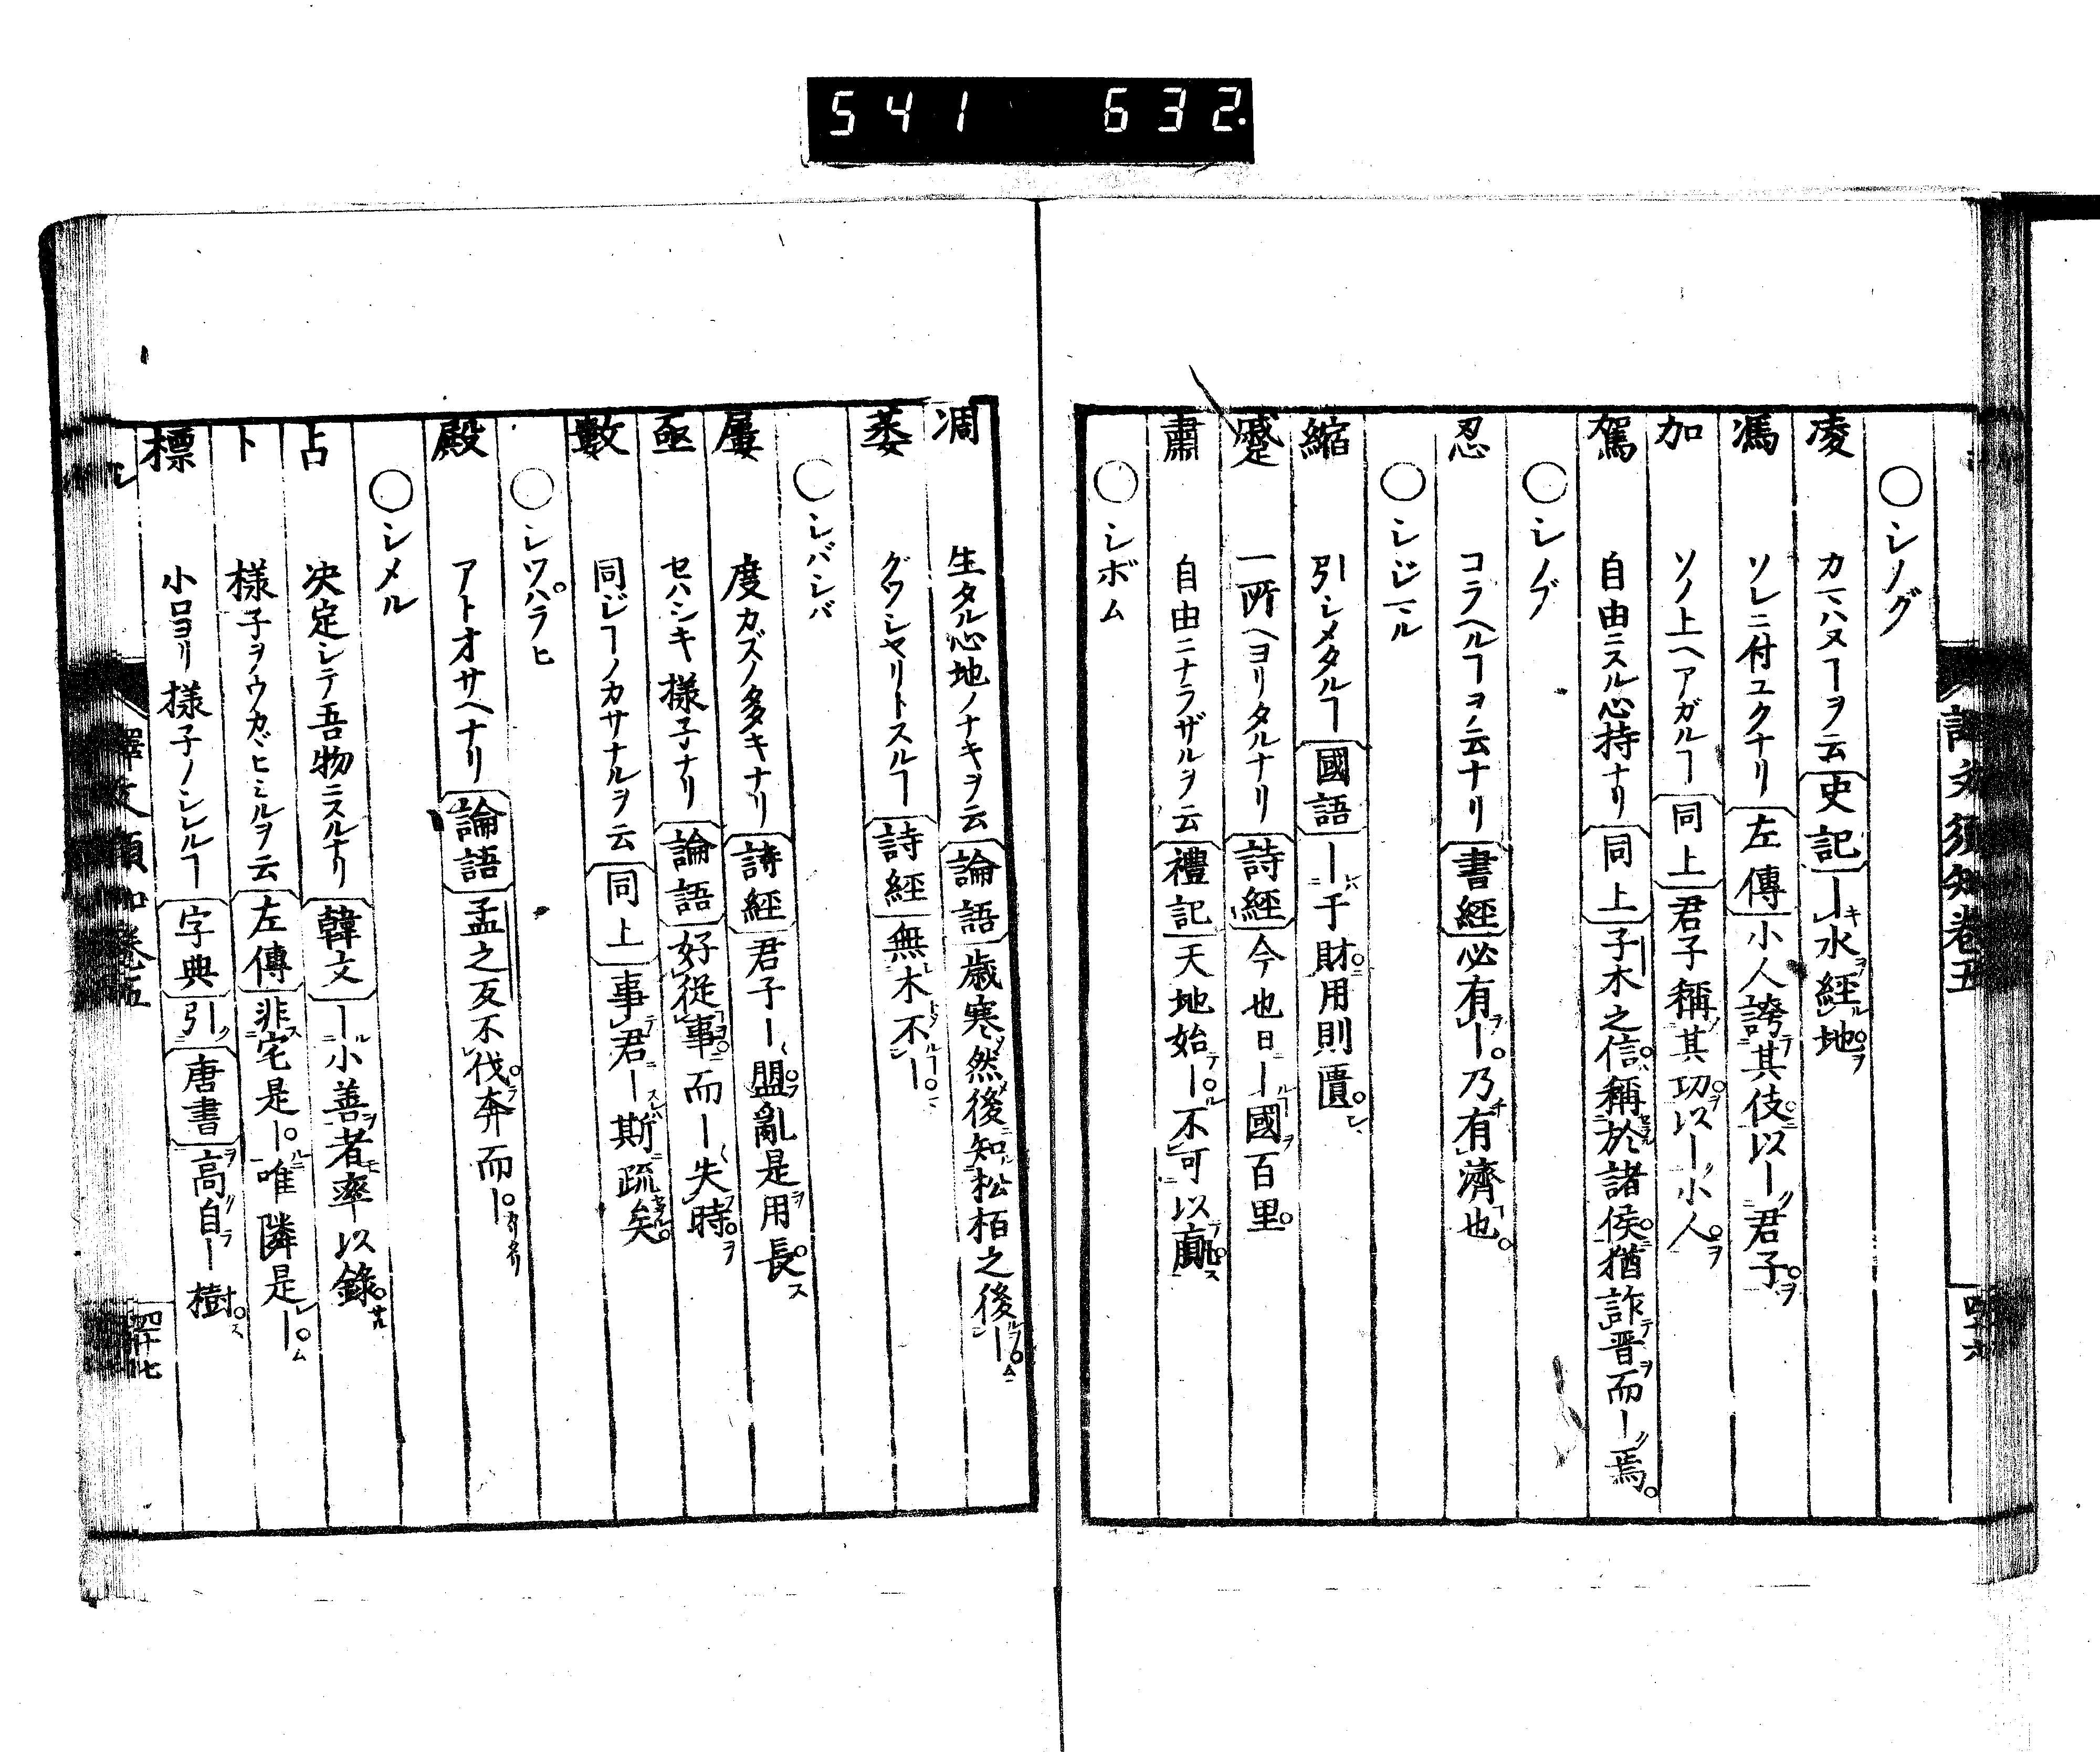 541 632
譯文須知卷五
四十六
○シノグ
凌 カマハヌヿヲ云 史記 ー水經地
馮 ソレニ付ユクナリ 左傳 小人誇其伎以ー君子
加 ソノ上ヘアガルヿ 同上 君子稱其功以ー小人
駕 自由ニスル心持ナリ 同上 子木之信稱於諸侯猶詐晋而ー焉
○シノブ
忍 コラヘルヿヲ云ナリ 書經 必有ー乃有濟也
○シジマル
縮 引シメタルヿ 國語 ー于財用則匱
蹙 一所ヘヨリタルナリ 詩經 今也日ー國百里
肅 自由ニナラザルヲ云 禮記 天地始ー不可以贏
○シボム
凋 生タル心地ノナキヲ云 論語 歳寒然後知松栢之後ー
萎 グワシヤリトスルヿ 詩經 無木不ー
○シバシバ
屢 度カズノ多キナリ 詩經 君子ー盟亂是用長
亟 セハシキ様子ナリ 論語 好從事而ー失時
數 同ジヿノカサナルヲ云 同上 事君ー斯疏矣
○シツパラヒ
殿 アトオサヘナリ 論語 孟之反不伐奔而ー
○シメル
占 决定シテ吾物ニスルナリ 韓文 ー小善者率以錄
卜 様子ヲウカヾヒミルヲ云 左傳 非宅是ー唯隣是ー
標 小口ヨリ様子ノシレルヿ 字典 引ー 唐書 高自ー樹
譯文須知卷五
四十七